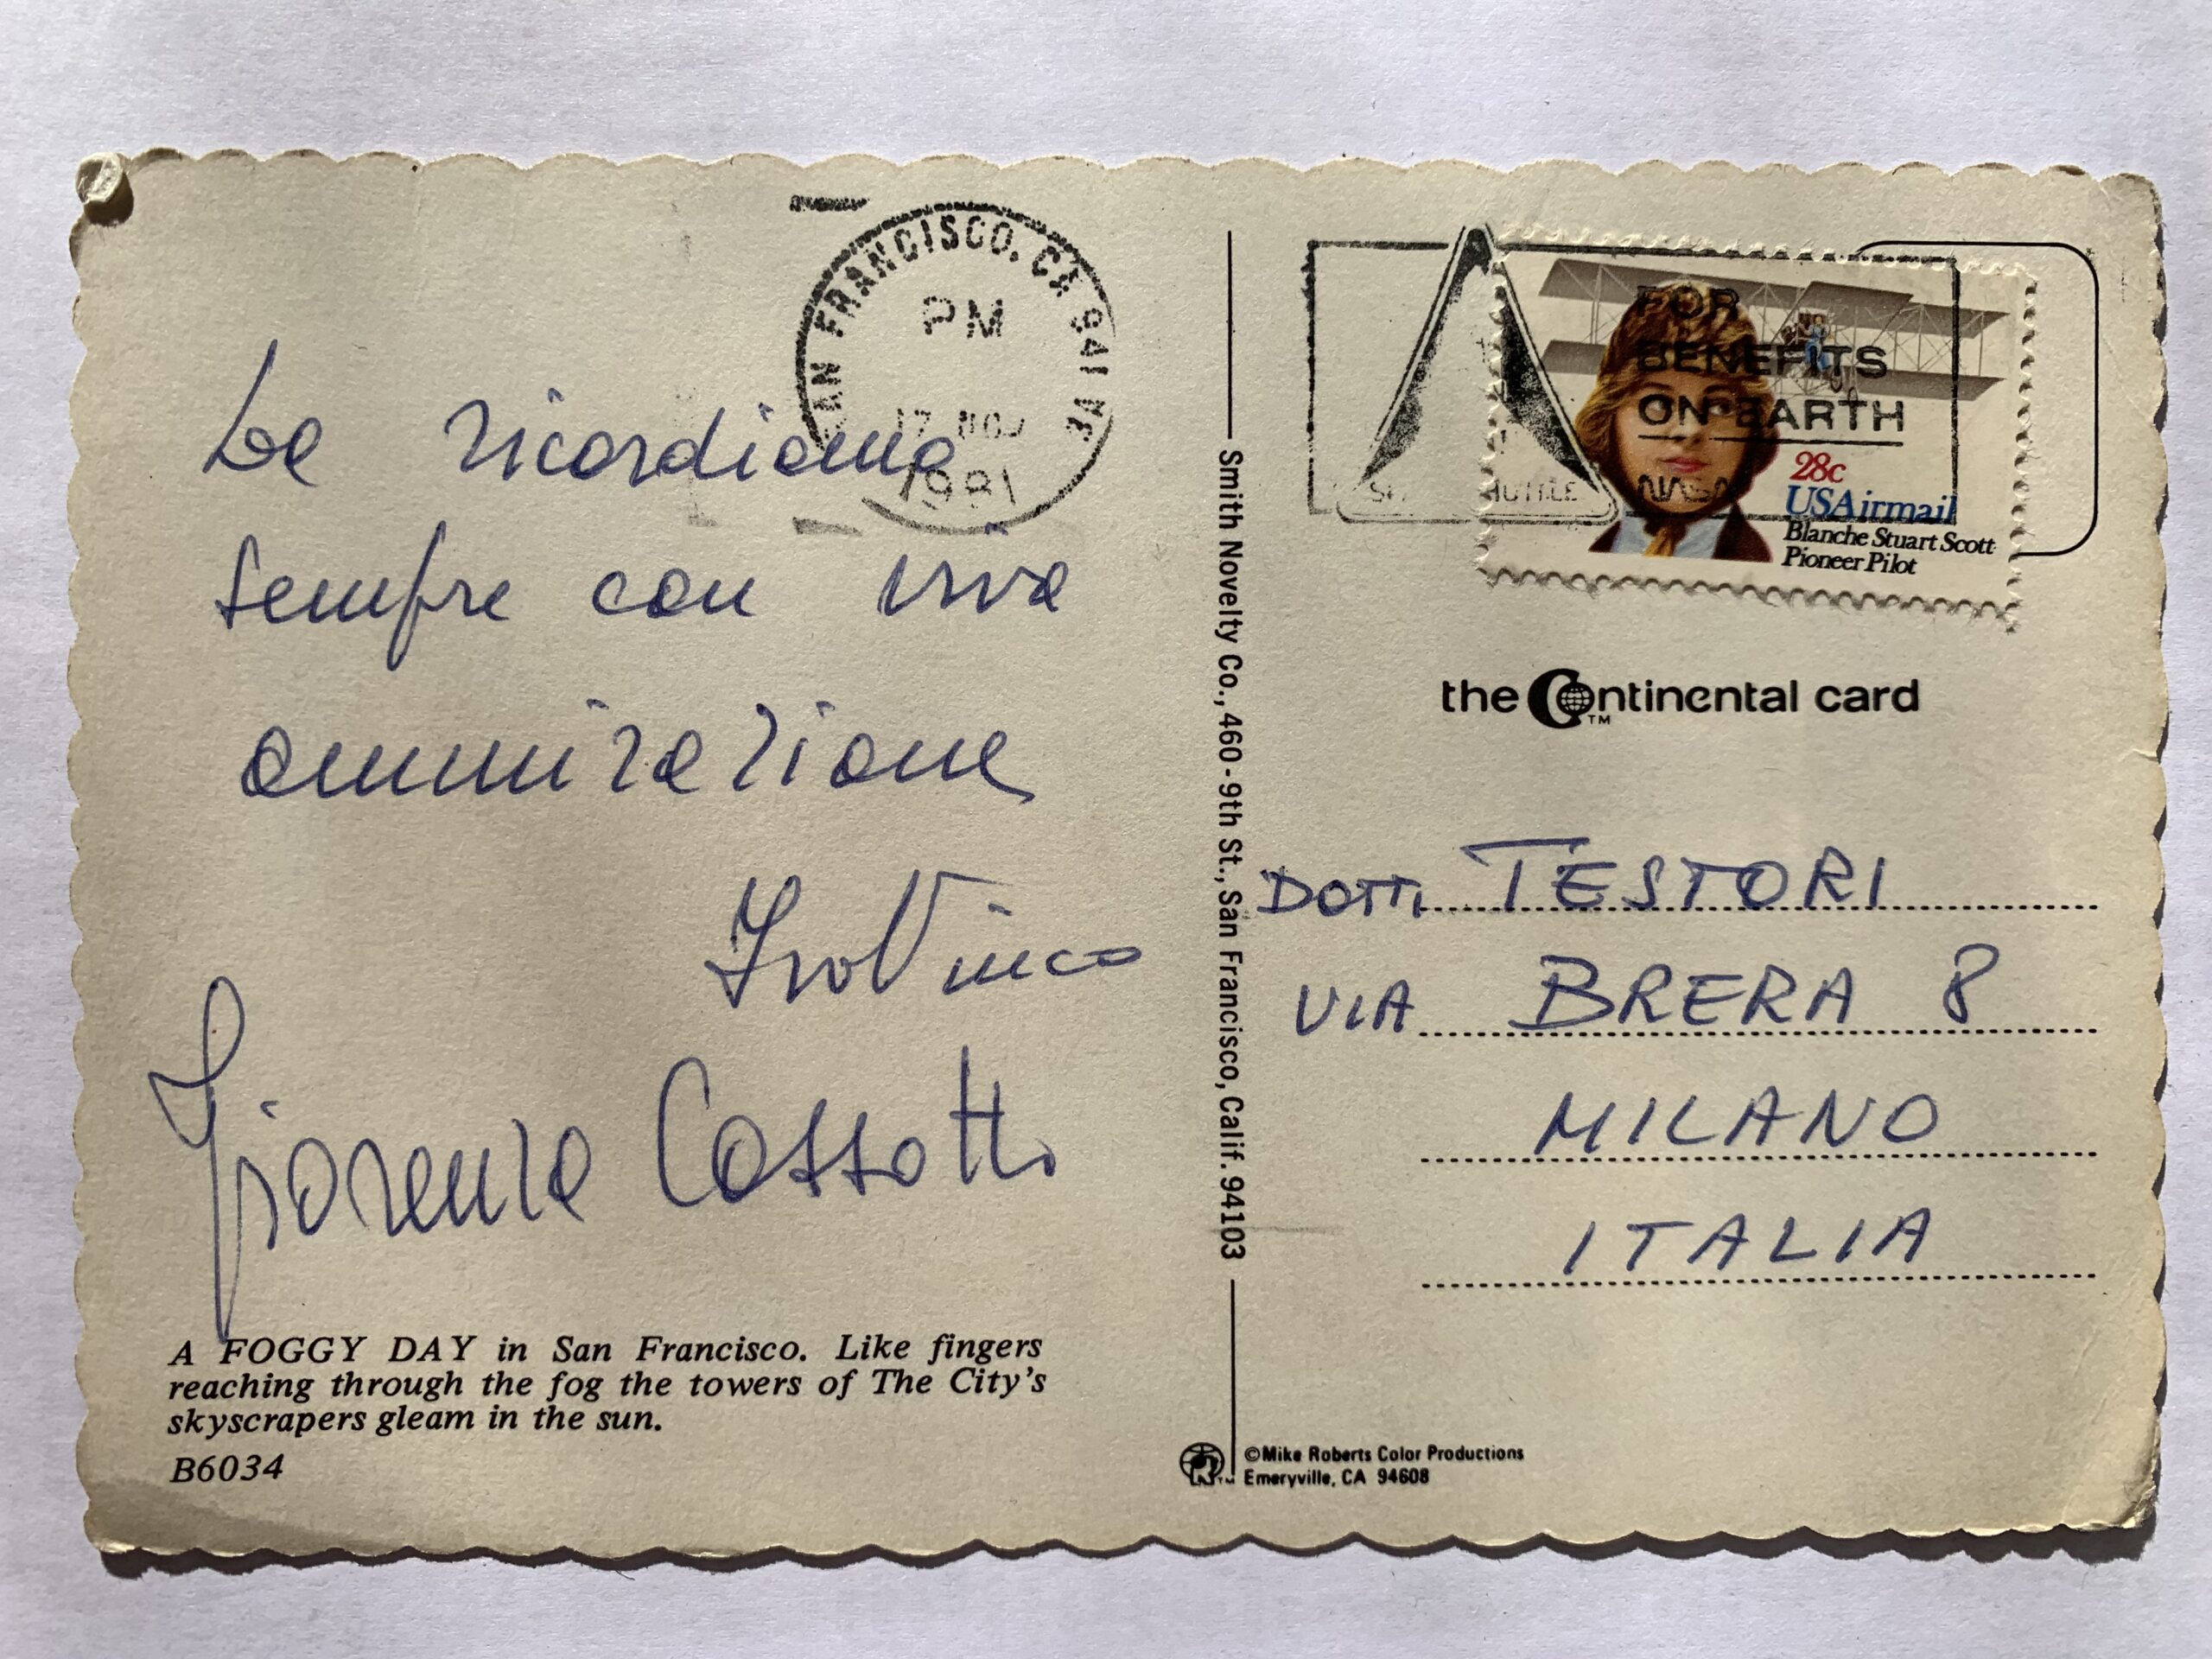 SAN FRANCISCO, CA 941
PM
17 NOV
1981
La ricordiamo
sempre con viva
ammirazione
Ivo Vinco
Fiorenza Cossotto
A FOGGY DAY in San Francisco. Like fingers
reaching through the fog the towers of The City's
skyscrapers gleam in the sun.
B6034
Smith Novelty Co., 460-9th St., San Francisco, Calif. 94103
©Mike Roberts Color Productions
Emeryville, CA 94608
FOR
BENEFITS
ON EARTH
SHUTTLE NASA
28c
USAirmail
Blanche Stuart Scott
Pioneer Pilot
the Continental card
TM
DOTT. TESTORI
VIA BRERA 8
MILANO
ITALIA